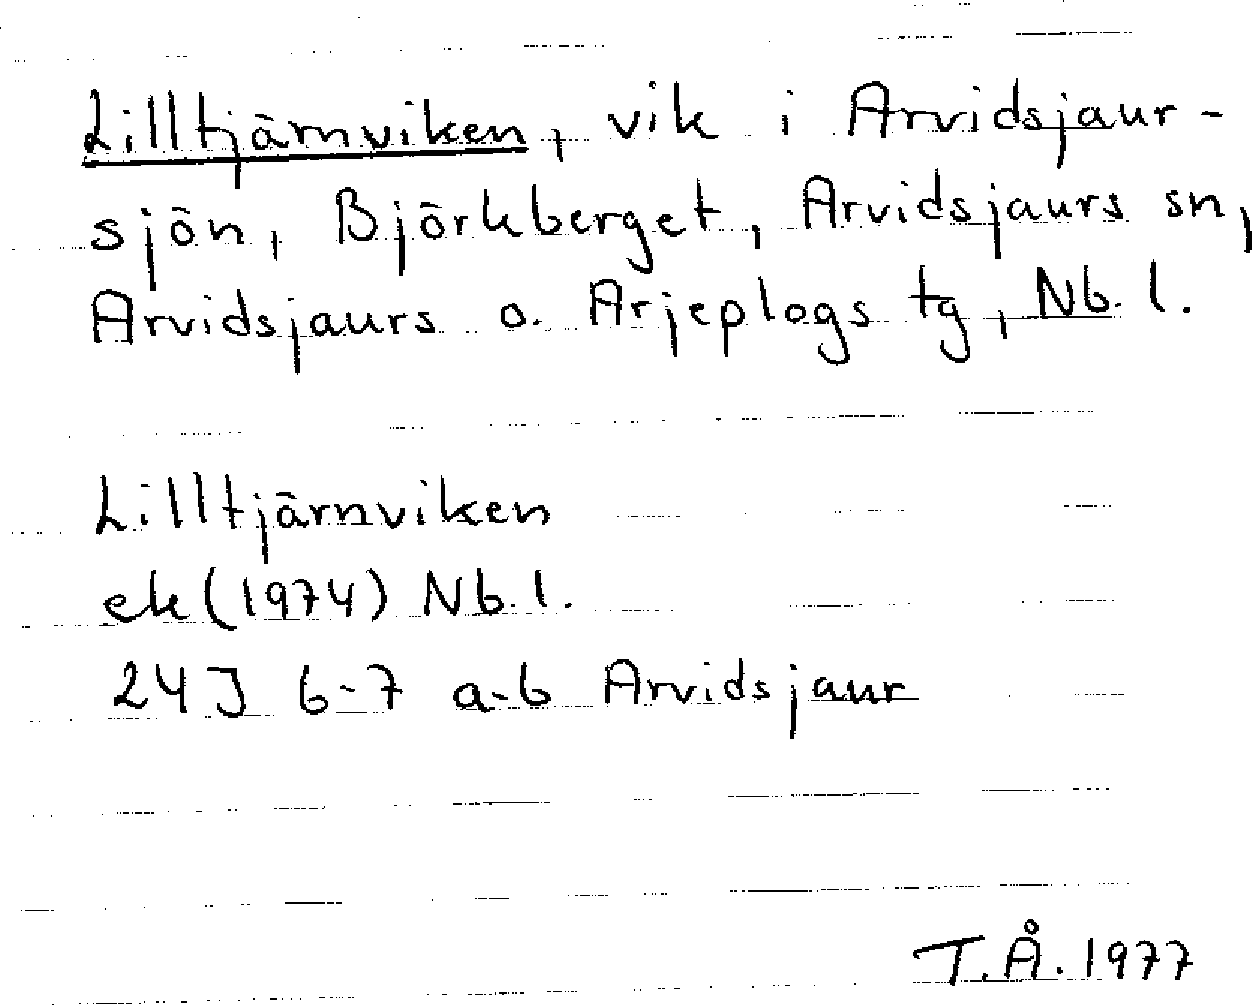 Lilltjärnviken, vik i Arvidsjaur-
sjön, Björkberget, Arvidsjaurs sn,
Arvidsjaurs o. Arjeplogs tg, Nb. l.
Lilltjärnviken
ek (1974) Nb. l.
24 J 6-7 a-b Arvidsjaur
T.Å. 1977